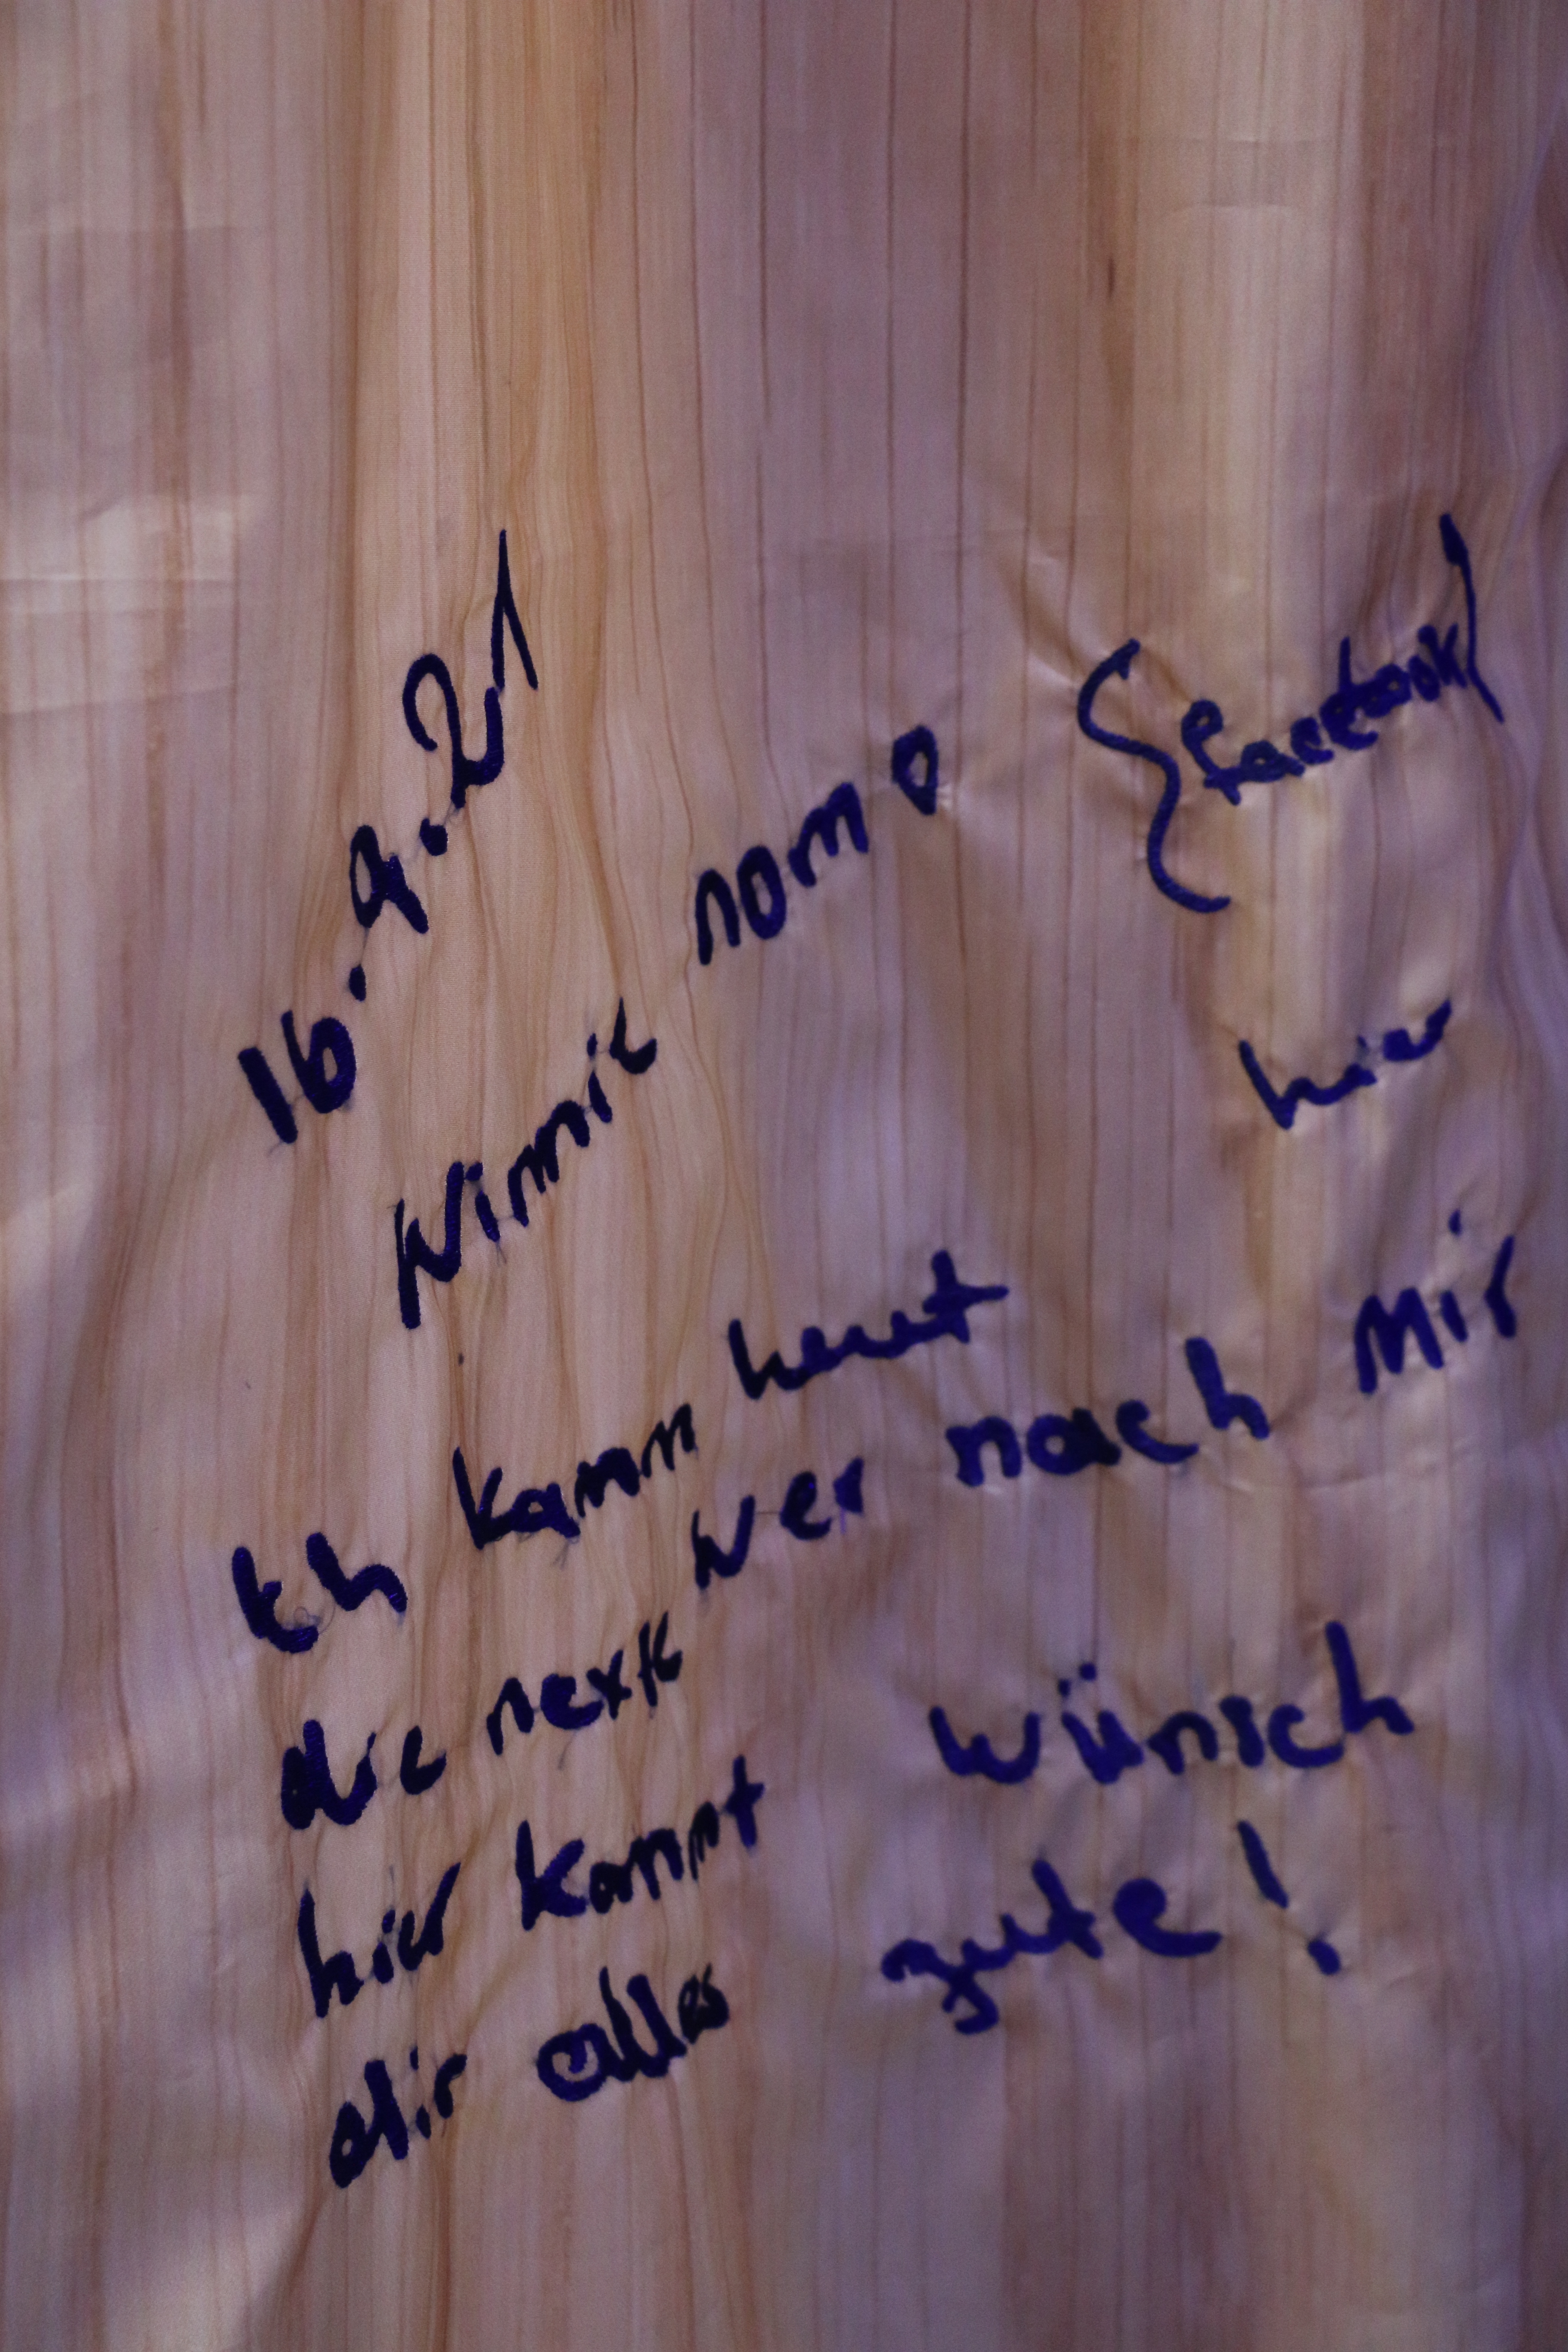 16.9.21
Winnie nomo {facebook}
Ich kann heut hier
die next wer nach mir
hier kommt wünsch
dir alles gute!